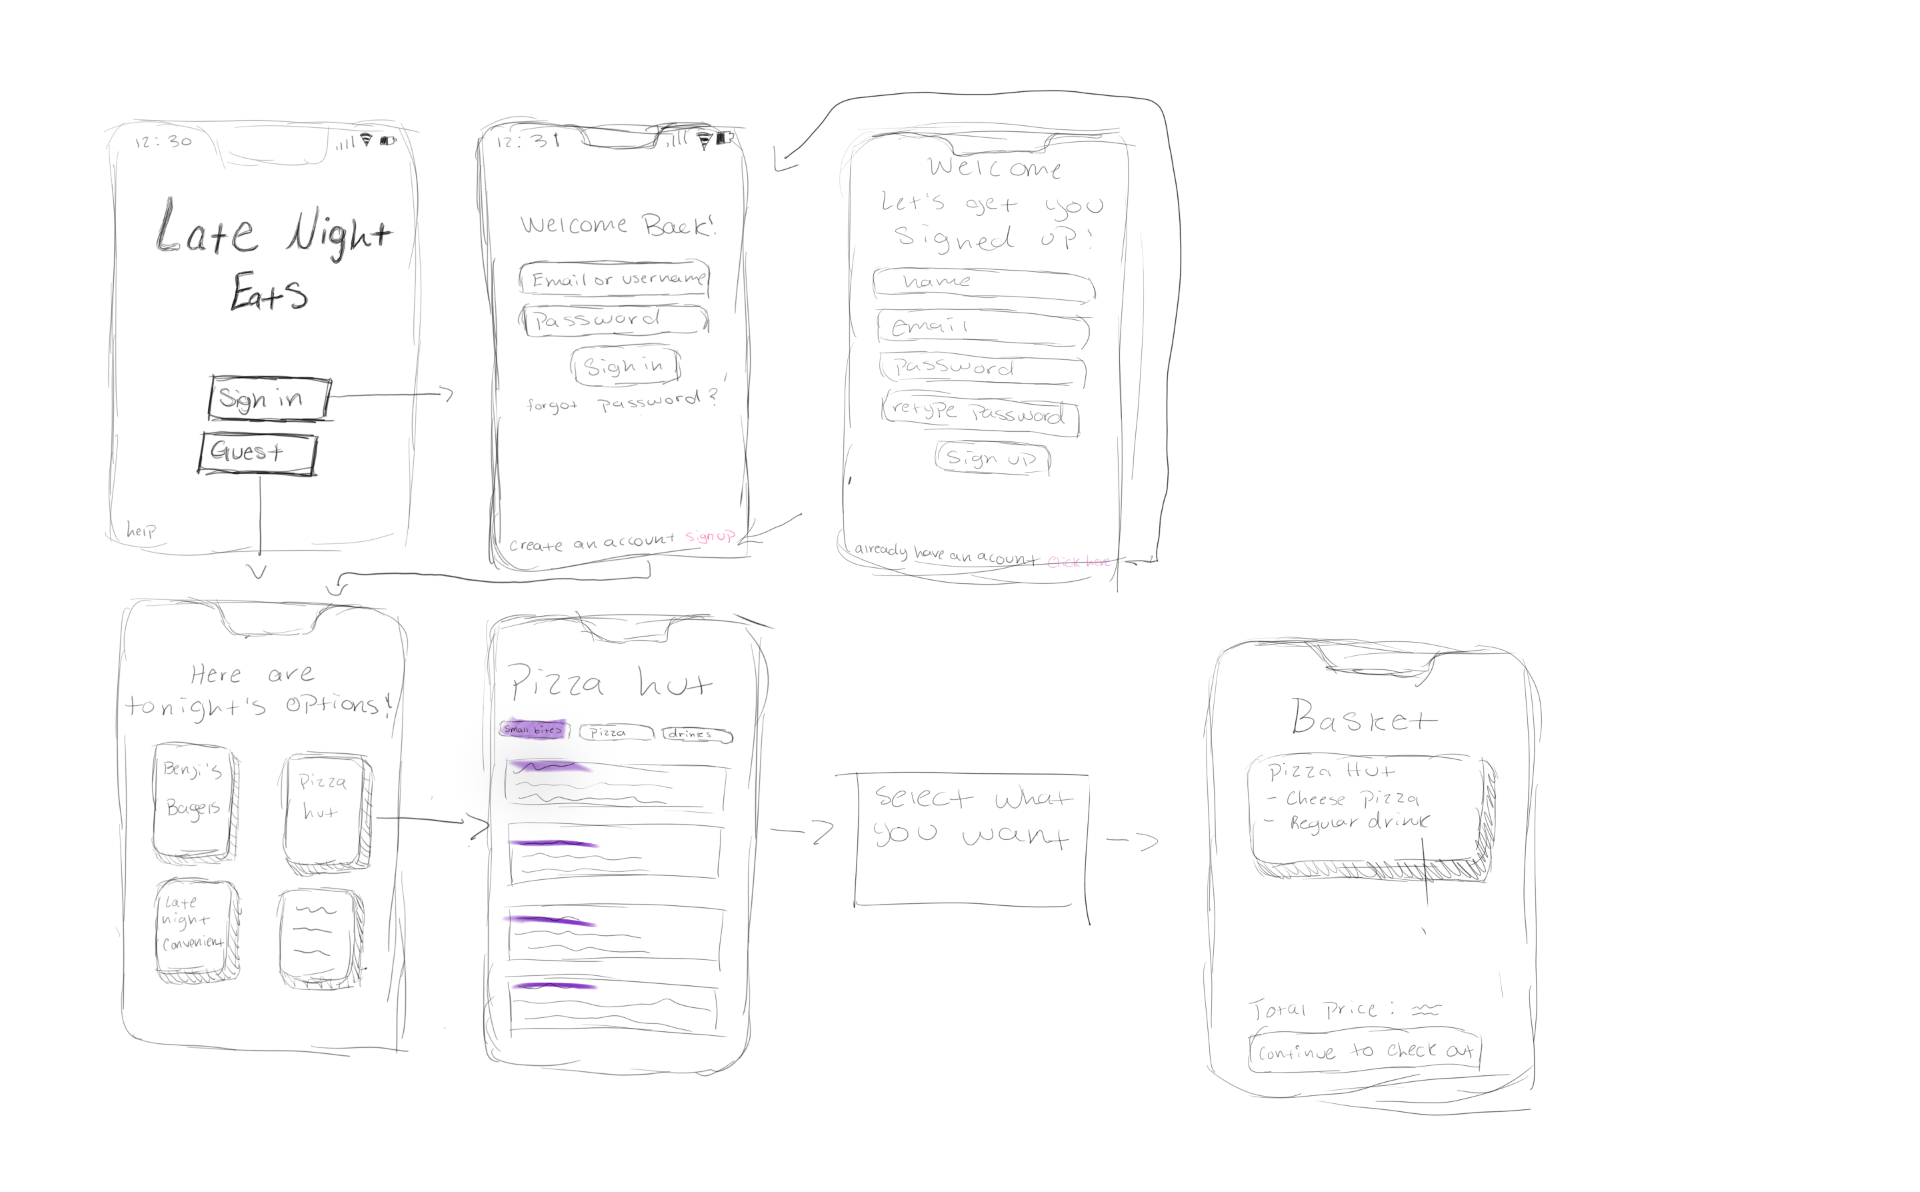 12:30
Late Night
Eats
Sign in
Guest
help
12:31
Welcome Back!
Email or username
Password
Sign in
forgot password?
create an account sign up
Welcome
Let's get you
Signed up!
name
Email
Password
retype Password
Sign up
already have an acount click here
Here are
tonight's options!
Benji's
Bagels
Pizza
hut
Late
night
Convenient
Pizza hut
Small bites
Pizza
drinks
Select what
you want
Basket
Pizza Hut
- Cheese pizza
- Regular drink
Total price :
Continue to check out